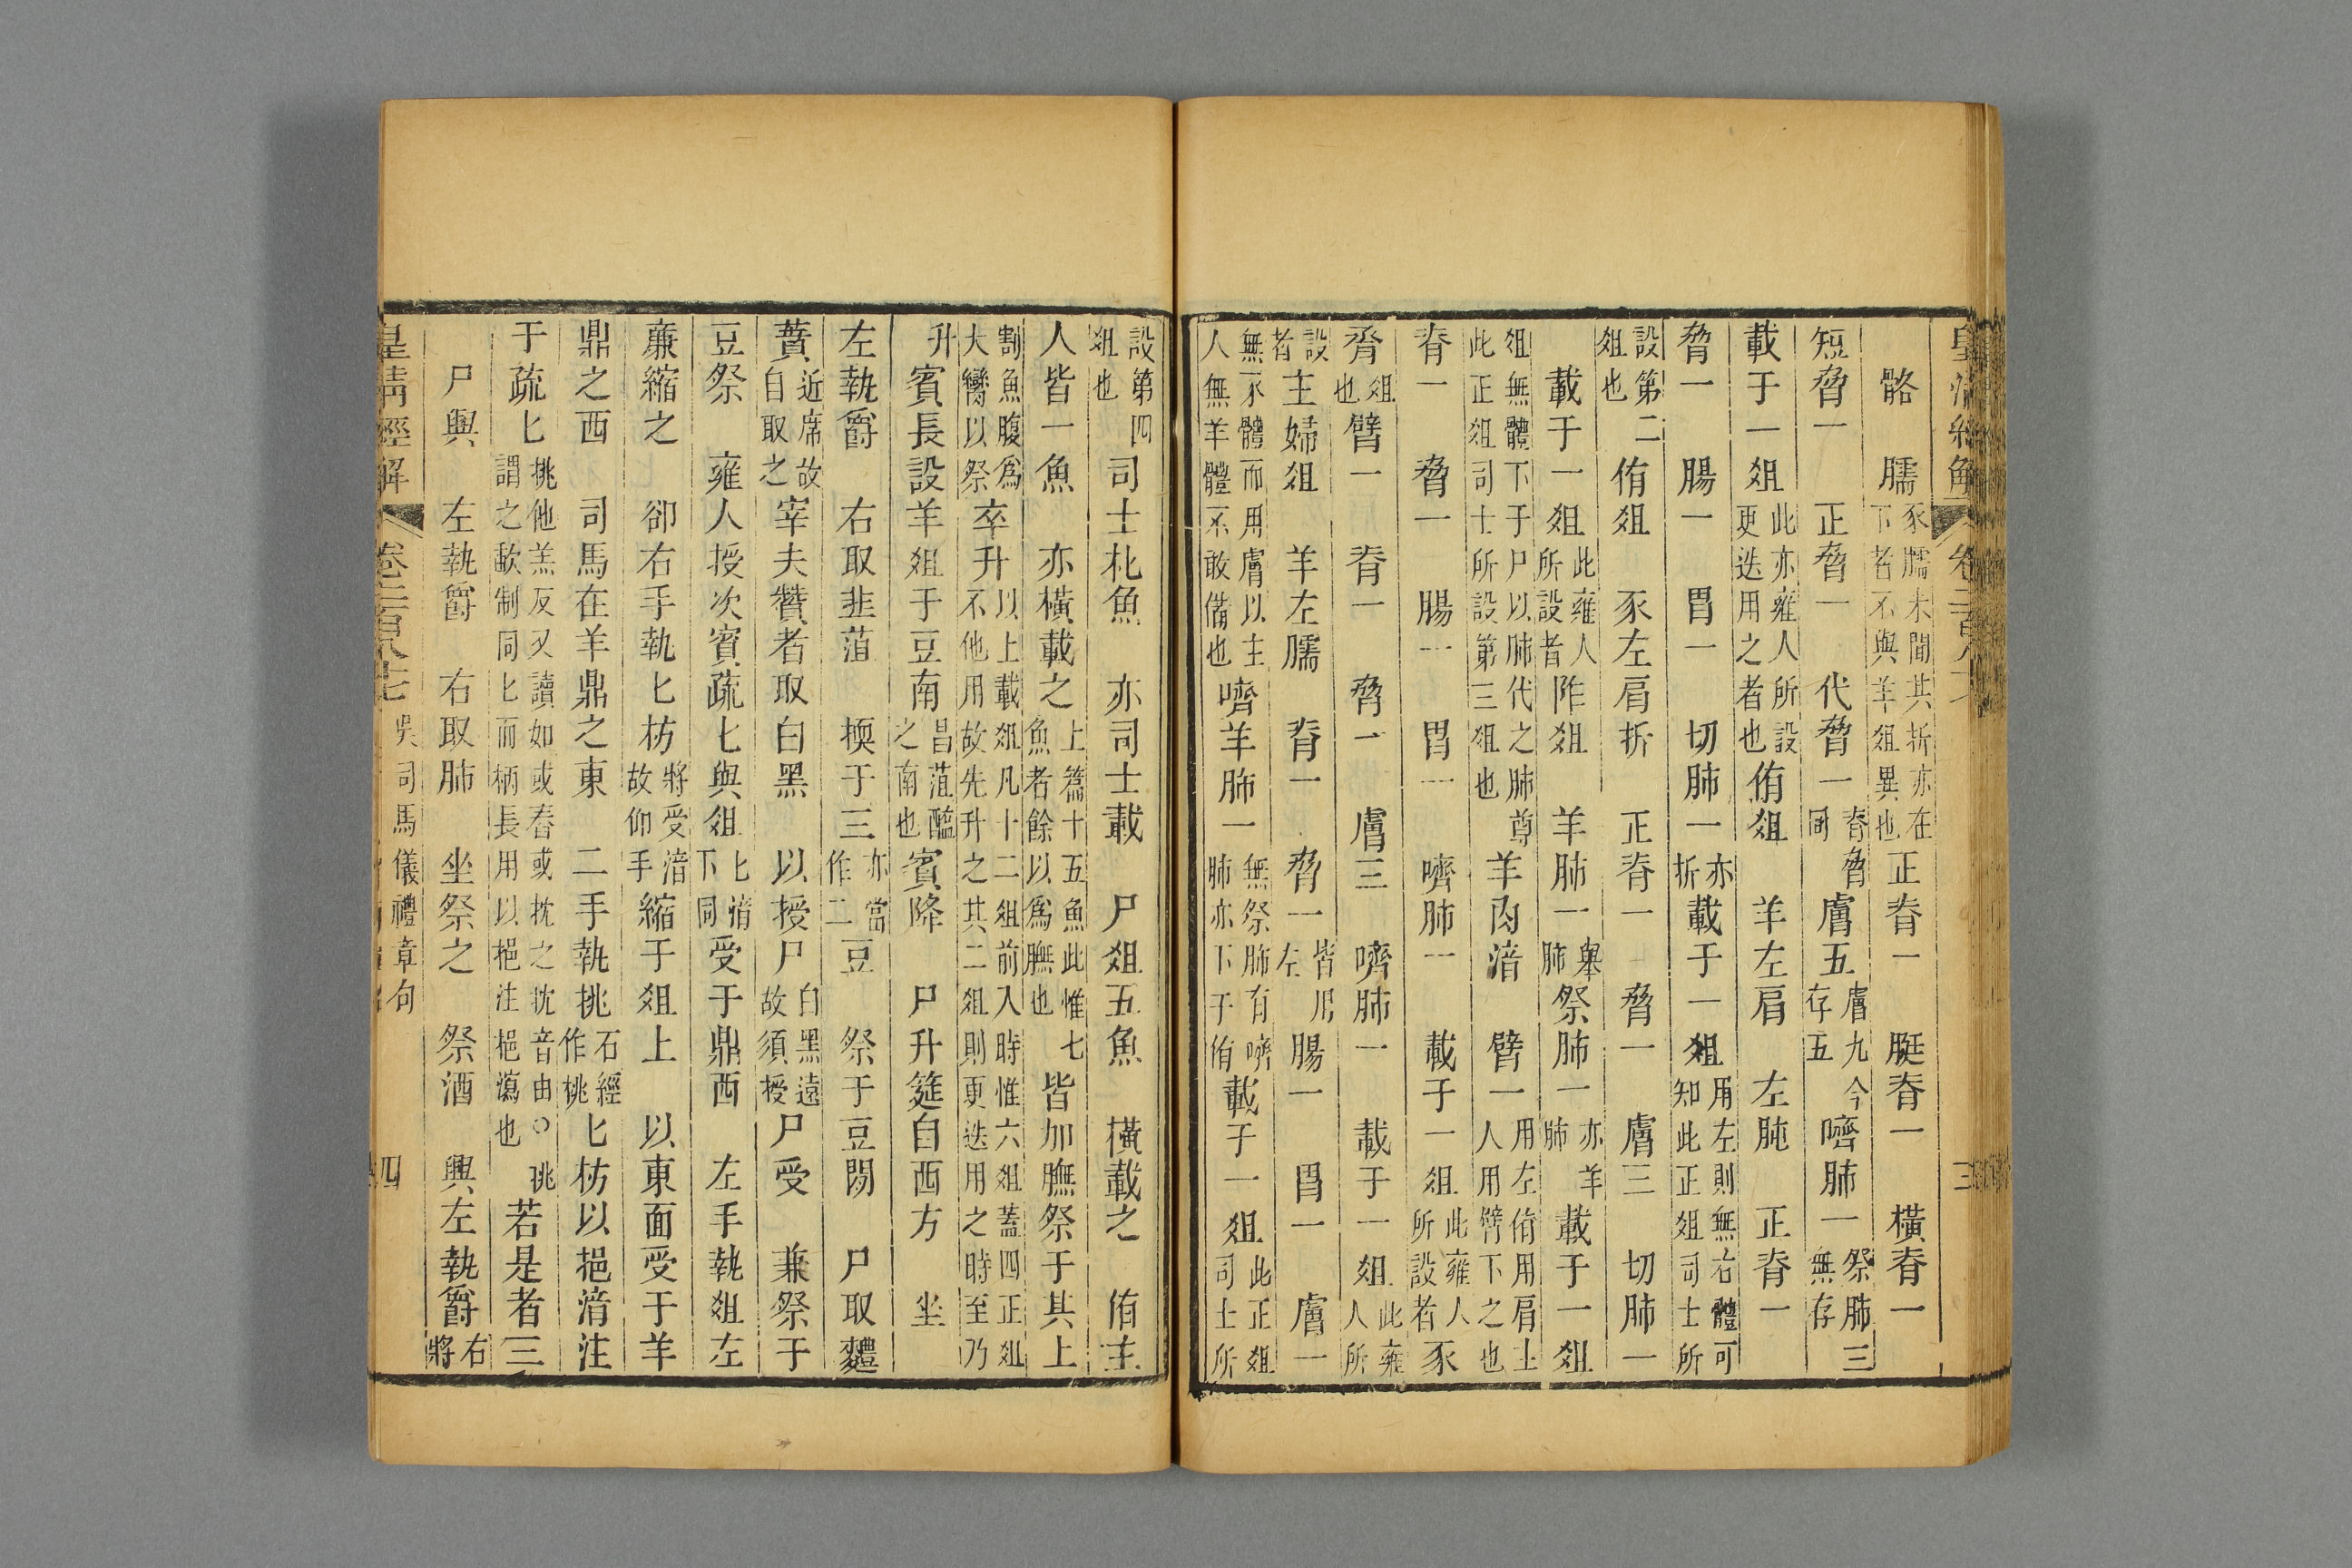 骼 臑豕臑未聞其折亦在下者不與羊俎異也正脊一 脡脊一 橫脊一
短脅一 正脅一 代脅一脊脅同 膚五膚九今存五 嚌肺一祭肺三無存
載于一俎此亦雍人所設更迭用之者也侑俎 羊左肩 左肫 正脊一
脅一 腸一 胃一 切肺一亦折載于一俎用左則無右體可知此正俎司士所
設第二俎也 侑俎 豕左肩折 正脊一 脅一 膚三 切肺一
載于一俎此雍人所設者阼俎 羊肺一舉肺祭肺一亦羊肺載于一俎
俎無體下于尸以肺代之肺尊此正俎司士所設第三俎也羊肉湆 臂一用左侑用肩主人用臂下之也
脊一 脅一 腸一 胃一 嚌肺一 載于一俎此雍人所設者豕
脀俎也臂一 脊一 脅一 膚三 嚌肺一 載于一俎此雍人所
設者主婦俎 羊左臑 脊一 脅一皆用左腸一 胃一 膚一
無豕體而用膚以主人無羊體不敢備也嚌羊肺一無祭肺有嚌肺亦下于侑載于一俎此正俎司士所
設第四俎也司士朼魚 亦司士載 尸俎五魚 橫載之 侑主
人皆一魚 亦橫載之上篇十五魚此惟七魚者餘以爲膴也皆加膴祭于其上
割魚腹爲大臠以祭卒升以上載俎凡十二俎前入時惟六俎蓋四正俎不他用故先升之其二俎則更迭用之時至乃
升賓長設羊俎于豆南昌菹醢之南也賓降 尸升筵自西方 坐
左執爵 右取韭菹 擩于三亦當作二豆 祭于豆閒 尸取麷
蕡近席故自取之宰夫贊者取白黑 以授尸白黑遠故須授尸受 兼祭于
豆祭 雍人授次賓疏匕與俎匕湆下同受于鼎西 左手執俎左
廉縮之 卻右手執匕枋將受湆故仰手縮于俎上 以東面受于羊
鼎之西 司馬在羊鼎之東 二手執挑石經作桃匕枋以挹湆注
于疏匕挑他羔反又讀如或舂或抌之抌音由○挑謂之歃制同匕而柄長用以挹注挹瀉也若是者三
尸興 左執爵 右取肺 坐祭之 祭酒 興左執爵右將
皇清經解 吳司馬儀禮章句 四